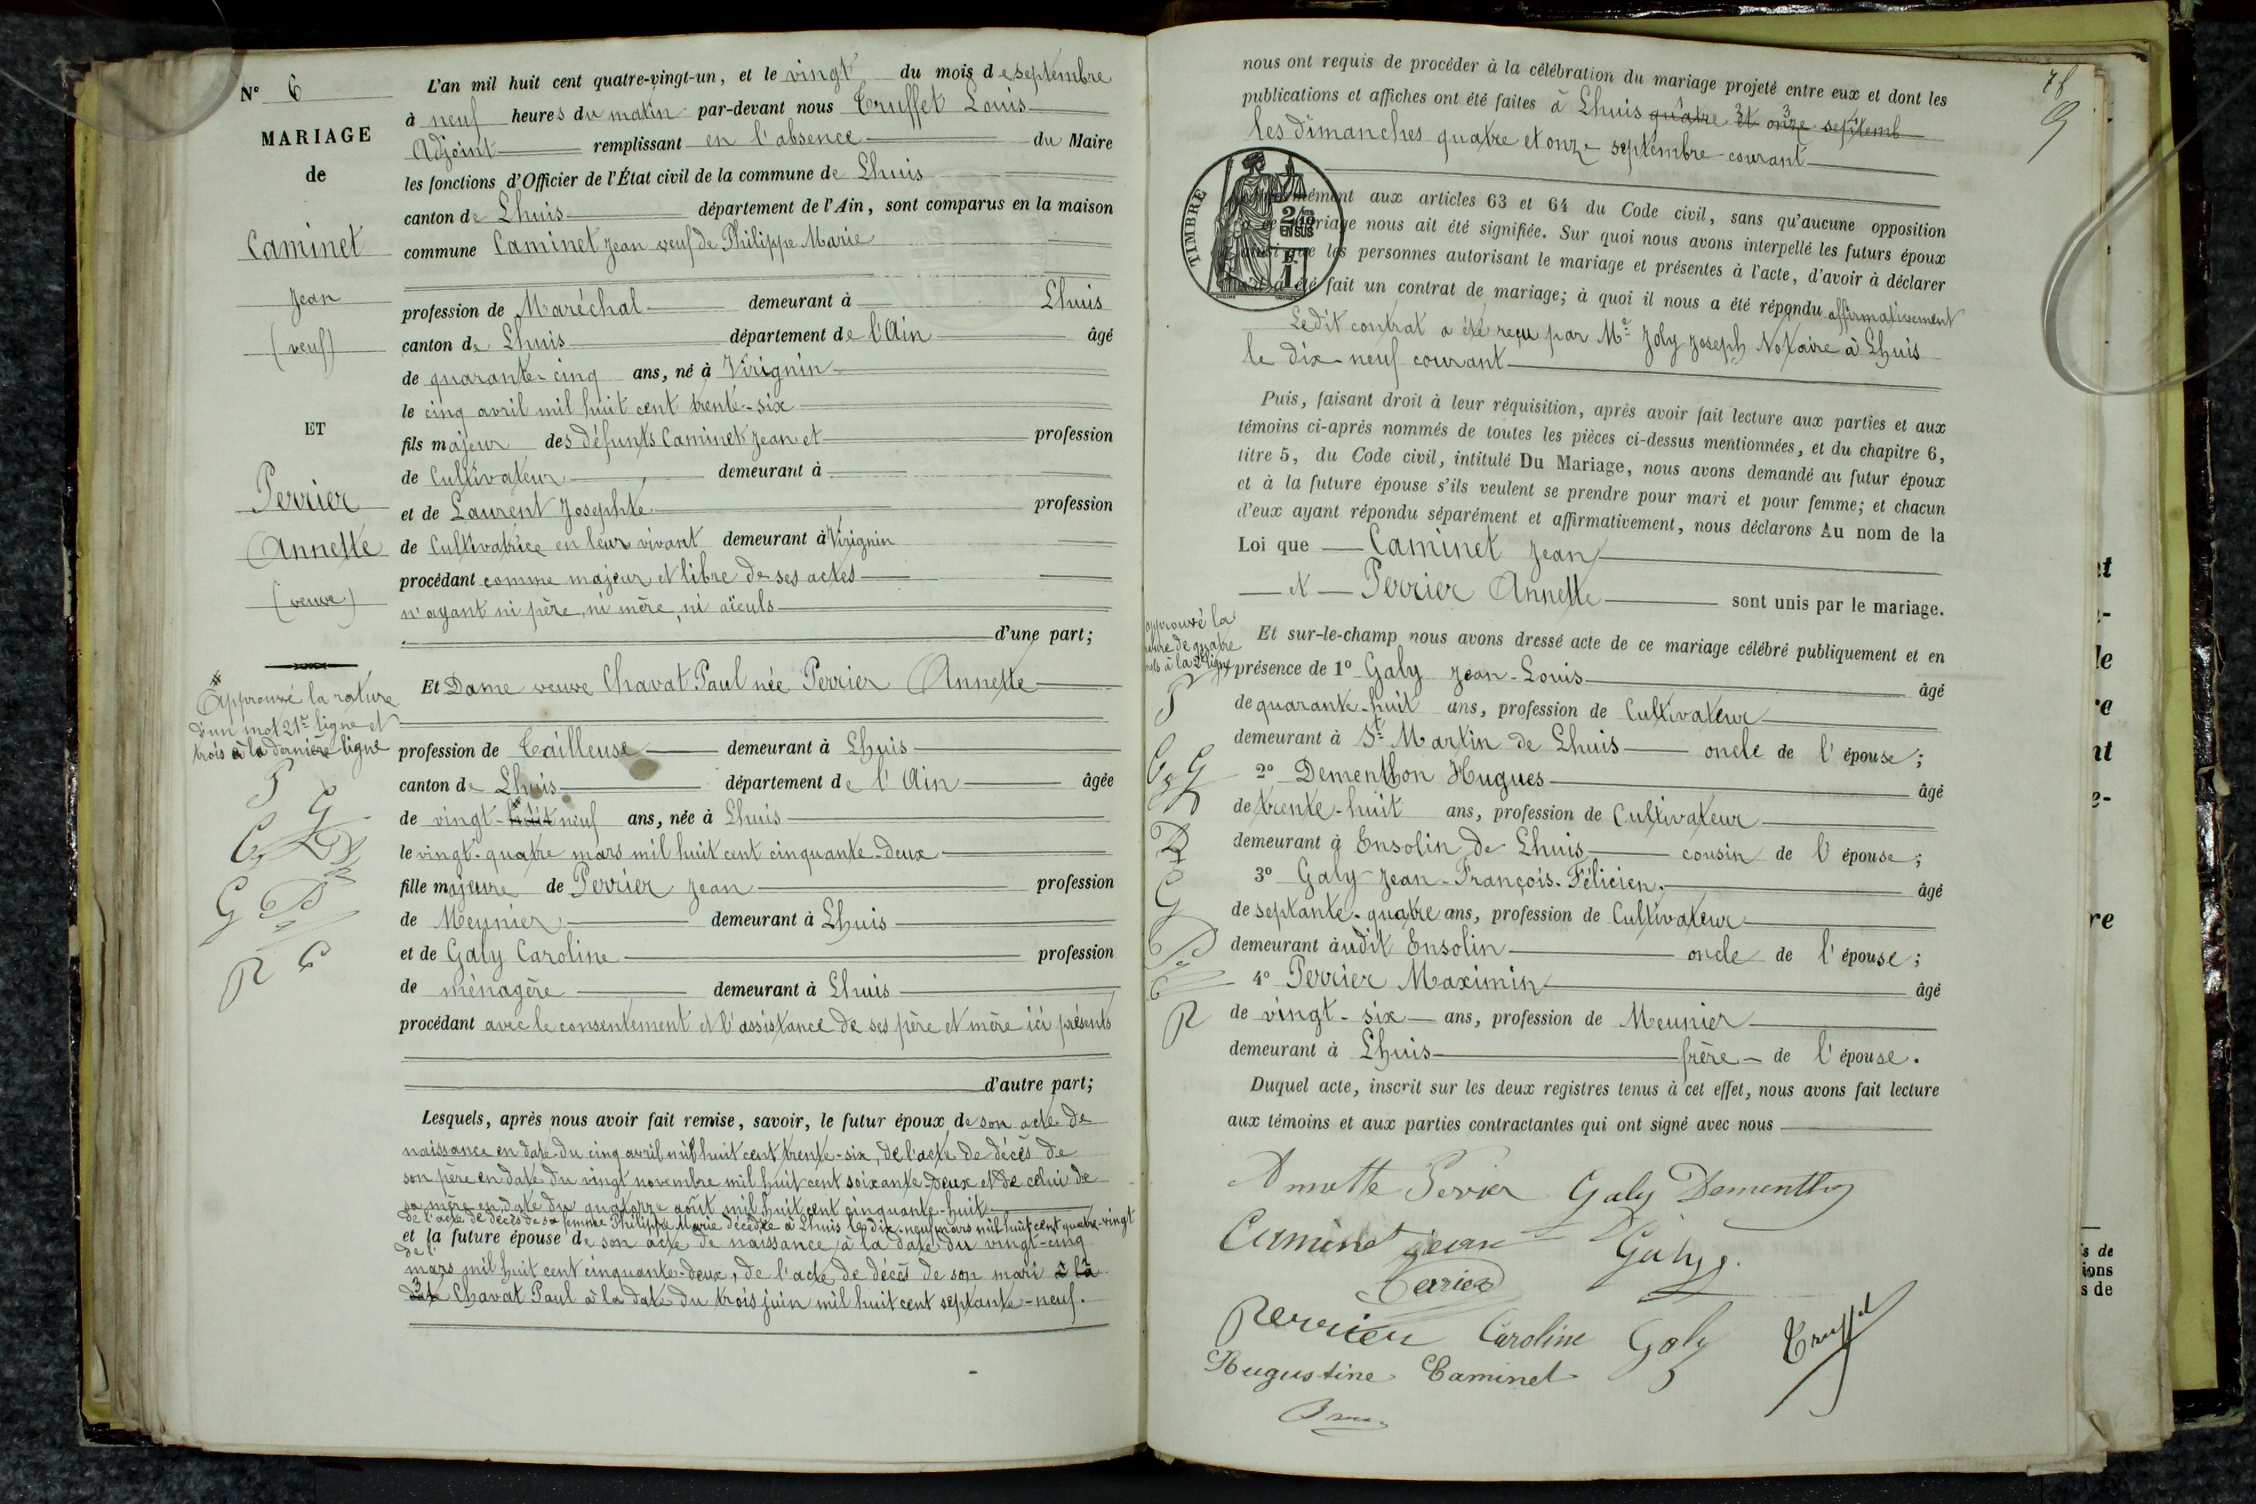 N° 6
MARIAGE
de
Caminet
Jean
(veuf)
ET
Perrier
Annette
(veuve)
Approuvé la rature
d'un mot 21e ligne et
trois à la dernière ligne
T
G
G
R
L'an mil huit cent quatre-vingt-un, et le vingt du mois de septembre
à neuf heures du matin par-devant nous Truffet Louis
Adjoint remplissant en l'absence du Maire
les fonctions d'Officier de l'État civil de la commune de Lhuis
canton de Lhuis département de l'Ain, sont comparus en la maison
commune Caminet Jean veuf de Philippe Marie
profession de Maréchal demeurant à Lhuis
canton de Lhuis département de l'Ain âgé
de quarante-cinq ans, né à Virignin
le cinq avril mil huit cent trente-six
fils majeur des défunts Caminet Jean et profession
de Cultivateur demeurant à
et de Laurent Josephte profession
de Cultivatrice en leur vivant demeurant à Virignin
procédant comme majeur et libre de ses actes
n'ayant ni père, ni mère, ni aïeuls
d'une part;
Et Dame veuve Chavat Paul née Perrier Annette
profession de Tailleuse demeurant à Lhuis
canton de Lhuis département de l'Ain âgée
de vingt-huit neuf ans, née à Lhuis
le vingt-quatre mars mil huit cent cinquante-deux
fille majeure de Perrier Jean profession
de Meunier demeurant à Lhuis
et de Galy Caroline profession
de ménagère demeurant à Lhuis
procédant avec le consentement et l'assistance de ses père et mère ici présents
d'autre part;
Lesquels, après nous avoir fait remise, savoir, le futur époux de son acte de
naissance en date du cinq avril mil huit cent trente-six, de l'acte de décès de
son père en date du vingt novembre mil huit cent soixante-deux et de celui de
sa mère en date du quatorze août mil huit cent cinquante-huit
de l'acte de décès de sa femme Philippe Marie décédée à Lhuis le dix-neuf mars mil huit cent quatre-vingt
et la future épouse de son acte de naissance à la date du vingt-cinq
de l'
mars mil huit cent cinquante-deux, de l'acte de décès de son mari à la
date Chavat Paul à la date du trois juin mil huit cent septante-neuf.
78
nous ont requis de procéder à la célébration du mariage projeté entre eux et dont les
publications et affiches ont été faites à Lhuis quatre et onze septemb
les dimanches quatre et onze septembre courant
TIMBRE
2/10 EN SUS
conformément aux articles 63 et 64 du Code civil, sans qu'aucune opposition
à ce mariage nous ait été signifiée. Sur quoi nous avons interpellé les futurs époux
ainsi que les personnes autorisant le mariage et présentes à l'acte, d'avoir à déclarer
s'il a été fait un contrat de mariage; à quoi il nous a été répondu affirmativement
Ledit contrat a été reçu par Me Joly Joseph Notaire à Lhuis
le dix-neuf courant
Puis, faisant droit à leur réquisition, après avoir fait lecture aux parties et aux
témoins ci-après nommés de toutes les pièces ci-dessus mentionnées, et du chapitre 6,
titre 5, du Code civil, intitulé Du Mariage, nous avons demandé au futur époux
et à la future épouse s'ils veulent se prendre pour mari et pour femme; et chacun
d'eux ayant répondu séparément et affirmativement, nous déclarons Au nom de la
Loi que Caminet Jean
et Perrier Annette sont unis par le mariage.
Approuvé la
rature de quatre
mots à la 2e ligne
Et sur-le-champ nous avons dressé acte de ce mariage célébré publiquement et en
présence de 1° Galy Jean-Louis âgé
de quarante-huit ans, profession de Cultivateur
demeurant à St Martin de Lhuis oncle de l'épouse;
2° Dementhon Hugues âgé
de trente-huit ans, profession de Cultivateur
demeurant à Ensolin de Lhuis cousin de l'épouse;
3° Galy Jean-François-Félicien âgé
de septante-quatre ans, profession de Cultivateur
demeurant audit Ensolin oncle de l'épouse;
4° Perrier Maximin âgé
de vingt-six ans, profession de Meunier
demeurant à Lhuis frère de l'épouse.
Duquel acte, inscrit sur les deux registres tenus à cet effet, nous avons fait lecture
aux témoins et aux parties contractantes qui ont signé avec nous
Annette Perier Galy Dementhon
Caminet jean Galy
Perrier Caroline Galy Truffet
Augustine Caminet